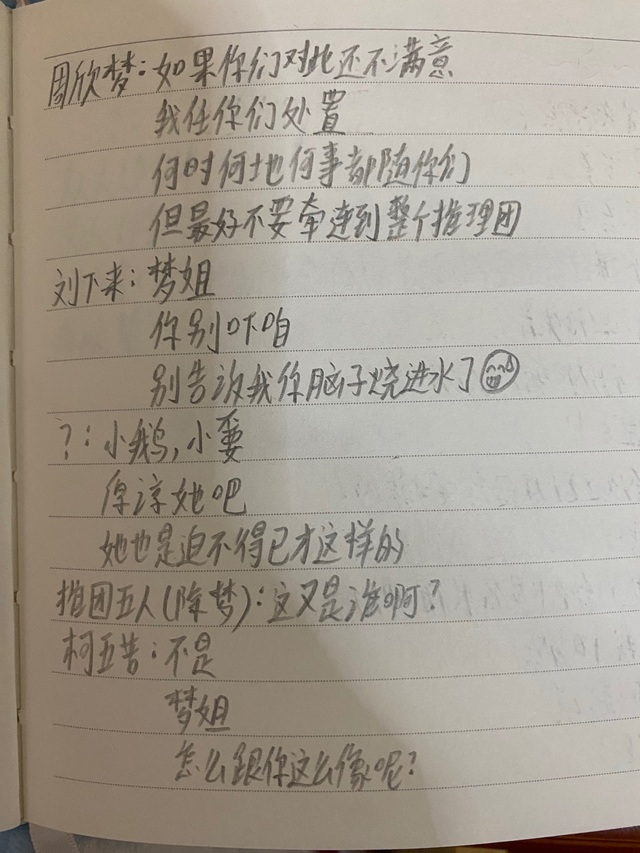 周欣梦：如果你们对此还不满意
我任你们处置
何时何地何事都随你们
但最好不要牵连到整个推理团
刘下来：梦姐
你别吓咱
别告诉我你脑子烧进水了
？：小鹅，小要
原谅她吧
她也是迫不得已才这样的
推团五人（除梦）：这又是谁啊？
柯五苦：不是
梦姐
怎么跟你这么像呢？